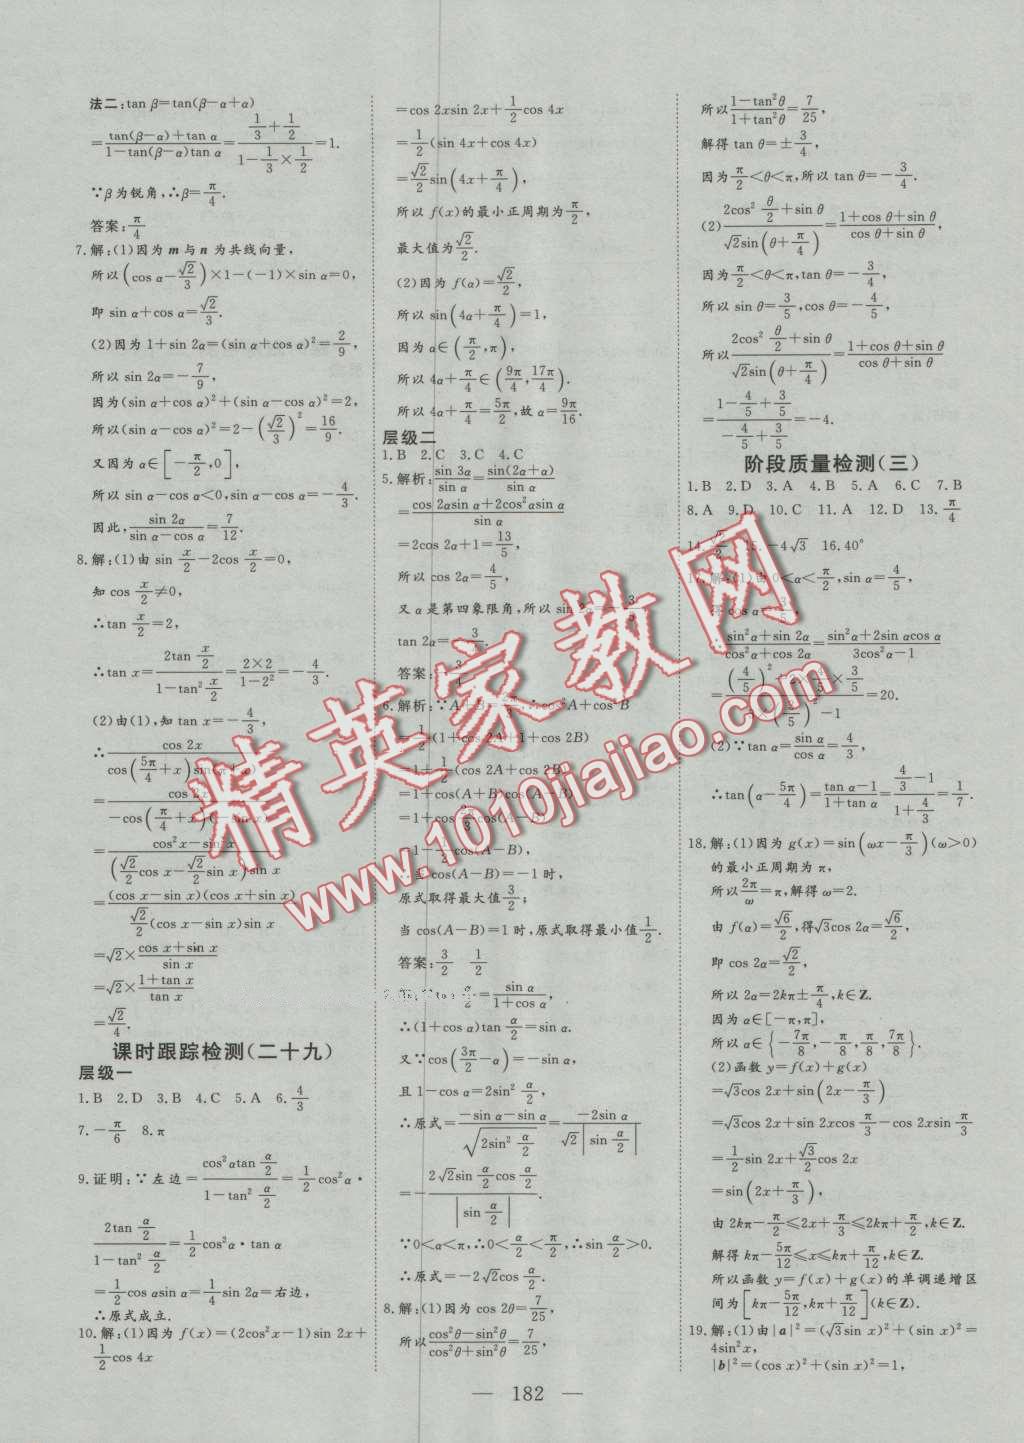 法二:tan β=tan(β－α+α)
=\frac{tan(β－α)+tan α}{1－tan(β－α)tan α}=\frac{\frac{1}{3}+\frac{1}{2}}{1－\frac{1}{3}×\frac{1}{2}}=1.
∵β为锐角,∴β=\frac{π}{4}.
答案:\frac{π}{4}
7.解:(1)因为 m 与 n 为共线向量,
所以(cos α－\frac{√2}{3})×1－(－1)×sin α=0,
即 sin α+cos α=\frac{√2}{3}.
(2)因为 1+sin 2α=(sin α+cos α)²=\frac{2}{9},
所以 sin 2α=－\frac{7}{9},
因为(sin α+cos α)²+(sin α－cos α)²=2,
所以(sin α－cos α)²=2－(\frac{√2}{3})²=\frac{16}{9}.
又因为 α∈[－\frac{π}{2},0],
所以 sin α－cos α<0,sin α－cos α=－\frac{4}{3}.
因此,\frac{sin 2α}{sin α－cos α}=\frac{7}{12}.
8.解:(1)由 sin \frac{x}{2}－2cos \frac{x}{2}=0,
知 cos \frac{x}{2}≠0,
∴tan \frac{x}{2}=2,
∴tan x=\frac{2tan \frac{x}{2}}{1－tan²\frac{x}{2}}=\frac{2×2}{1－2²}=－\frac{4}{3}.
(2)由(1),知 tan x=－\frac{4}{3},
∴\frac{cos 2x}{cos(\frac{5π}{4}+x)sin(π+x)}
=\frac{cos 2x}{－cos(\frac{π}{4}+x)(－sin x)}
=\frac{cos²x－sin²x}{(\frac{√2}{2}cos x－\frac{√2}{2}sin x)sin x}
=\frac{(cos x－sin x)(cos x+sin x)}{\frac{√2}{2}(cos x－sin x)sin x}
=√2×\frac{cos x+sin x}{sin x}
=√2×\frac{1+tan x}{tan x}
=\frac{√2}{4}.
课时跟踪检测(二十九)
层级一
1.B 2.D 3.B 4.C 5.A 6.\frac{4}{3}
7.－\frac{π}{6} 8.π
9.证明:∵左边=\frac{cos²αtan \frac{α}{2}}{1－tan²\frac{α}{2}}=\frac{1}{2}cos²α·
\frac{2tan \frac{α}{2}}{1－tan²\frac{α}{2}}=\frac{1}{2}cos²α·tan α
=\frac{1}{2}cos αsin α=\frac{1}{4}sin 2α=右边,
∴原式成立.
10.解:(1)因为 f(x)=(2cos²x－1)sin 2x+
\frac{1}{2}cos 4x
=cos 2xsin 2x+\frac{1}{2}cos 4x
=\frac{1}{2}(sin 4x+cos 4x)
=\frac{√2}{2}sin(4x+\frac{π}{4}),
所以 f(x)的最小正周期为\frac{π}{2},
最大值为\frac{√2}{2}.
(2)因为 f(α)=\frac{√2}{2},
所以 sin(4α+\frac{π}{4})=1,
因为 α∈(\frac{π}{2},π),
所以 4α+\frac{π}{4}∈(\frac{9π}{4},\frac{17π}{4}).
所以 4α+\frac{π}{4}=\frac{5π}{2},故 α=\frac{9π}{16}.
层级二
1.B 2.C 3.C 4.C
5.解析:\frac{sin 3α}{sin α}=\frac{sin(2α+α)}{sin α}
=\frac{cos 2αsin α+2cos²αsin α}{sin α}
=2cos 2α+1=\frac{13}{5},
所以 cos 2α=\frac{4}{5},
又 α 是第四象限角,所以 sin 2α=－\frac{3}{5},
tan 2α=－\frac{3}{4}.
答案:－\frac{3}{4}
6.解析:∵A+B=\frac{2π}{3},∴cos²A+cos²B
=\frac{1}{2}(1+cos 2A+1+cos 2B)
=1+\frac{1}{2}(cos 2A+cos 2B)
=1+cos(A+B)cos(A－B)
=1+cos \frac{2π}{3}·cos(A－B)
=1－\frac{1}{2}cos(A－B),
∴当 cos(A－B)=－1 时,
原式取得最大值\frac{3}{2};
当 cos(A－B)=1 时,原式取得最小值\frac{1}{2}.
答案:\frac{3}{2} \frac{1}{2}
tan \frac{α}{2}=\frac{sin α}{1+cos α},
∴(1+cos α)tan \frac{α}{2}=sin α.
又∵cos(\frac{3π}{2}－α)=－sin α,
且 1－cos α=2sin²\frac{α}{2},
∴原式=\frac{－sin α－sin α}{√(2sin²\frac{α}{2})}=\frac{－2sin α}{√2|sin \frac{α}{2}|}
=－\frac{2√2sin \frac{α}{2}cos \frac{α}{2}}{|sin \frac{α}{2}|}.
∵0<α<π,∴0<\frac{α}{2}<\frac{π}{2},∴sin \frac{α}{2}>0.
∴原式=－2√2cos \frac{α}{2}.
8.解:(1)因为 cos 2θ=\frac{7}{25},
所以\frac{cos²θ－sin²θ}{cos²θ+sin²θ}=\frac{7}{25},
所以\frac{1－tan²θ}{1+tan²θ}=\frac{7}{25},
解得 tan θ=±\frac{3}{4},
因为\frac{π}{2}<θ<π,所以 tan θ=－\frac{3}{4}.
(2)\frac{2cos²\frac{θ}{2}+sin θ}{√2sin(θ+\frac{π}{4})}=\frac{1+cos θ+sin θ}{cos θ+sin θ},
因为\frac{π}{2}<θ<π,tan θ=－\frac{3}{4},
所以 sin θ=\frac{3}{5},cos θ=－\frac{4}{5},
所以\frac{2cos²\frac{θ}{2}+sin θ}{√2sin(θ+\frac{π}{4})}=\frac{1+cos θ+sin θ}{cos θ+sin θ}
=\frac{1－\frac{4}{5}+\frac{3}{5}}{－\frac{4}{5}+\frac{3}{5}}=－4.
阶段质量检测(三)
1.B 2.D 3.A 4.B 5.A 6.C 7.B
8.A 9.D 10.C 11.A 12.D 13.\frac{π}{4}
14.\frac{√2}{2} 15.－4√3 16.40°
17.解:(1)由 0<α<\frac{π}{2},sin α=\frac{4}{5},
得 cos α=\frac{3}{5},
∴\frac{sin²α+sin 2α}{cos²α+cos 2α}=\frac{sin²α+2sin αcos α}{3cos²α－1}
=\frac{(\frac{4}{5})²+2×\frac{4}{5}×\frac{3}{5}}{3×(\frac{3}{5})²－1}=20.
(2)∵tan α=\frac{sin α}{cos α}=\frac{4}{3},
∴tan(α－\frac{5π}{4})=\frac{tan α－1}{1+tan α}=\frac{\frac{4}{3}－1}{1+\frac{4}{3}}=\frac{1}{7}.
18.解:(1)因为 g(x)=sin(ωx－\frac{π}{3})(ω>0)
的最小正周期为 π,
所以\frac{2π}{ω}=π,解得 ω=2.
由 f(α)=\frac{√6}{2},得√3cos 2α=\frac{√6}{2},
即 cos 2α=\frac{√2}{2},
所以 2α=2kπ±\frac{π}{4},k∈Z.
因为 α∈[－π,π],
所以 α∈{－\frac{7π}{8},－\frac{π}{8},\frac{π}{8},\frac{7π}{8}}.
(2)函数 y=f(x)+g(x)
=√3cos 2x+sin(2x－\frac{π}{3})
=√3cos 2x+sin 2xcos\frac{π}{3}－cos 2xsin\frac{π}{3}
=\frac{1}{2}sin 2x+\frac{√3}{2}cos 2x
=sin(2x+\frac{π}{3}),
由 2kπ－\frac{π}{2}≤2x+\frac{π}{3}≤2kπ+\frac{π}{2},k∈Z.
解得 kπ－\frac{5π}{12}≤x≤kπ+\frac{π}{12},k∈Z.
所以函数 y=f(x)+g(x)的单调递增区
间为[kπ－\frac{5π}{12},kπ+\frac{π}{12}](k∈Z).
19.解:(1)由|a|²=(√3sin x)²+(sin x)²=
4sin²x,
|b|²=(cos x)²+(sin x)²=1,
— 182 —
精英家教网
www.1010jiajiao.com